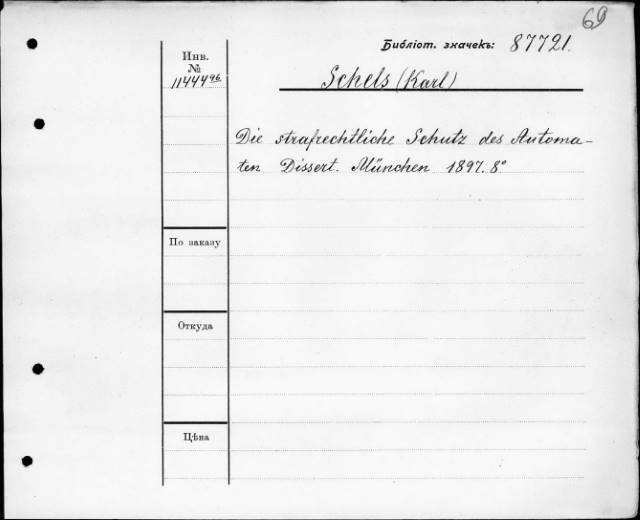 69
Библіот. значекъ: 87721.
Инв.
№
11444 96
Schels (Karl)
Die strafrechtliche Schutz des Automa-
ten Dissert. München 1897. 8°
По заказу
Откуда
Цѣна